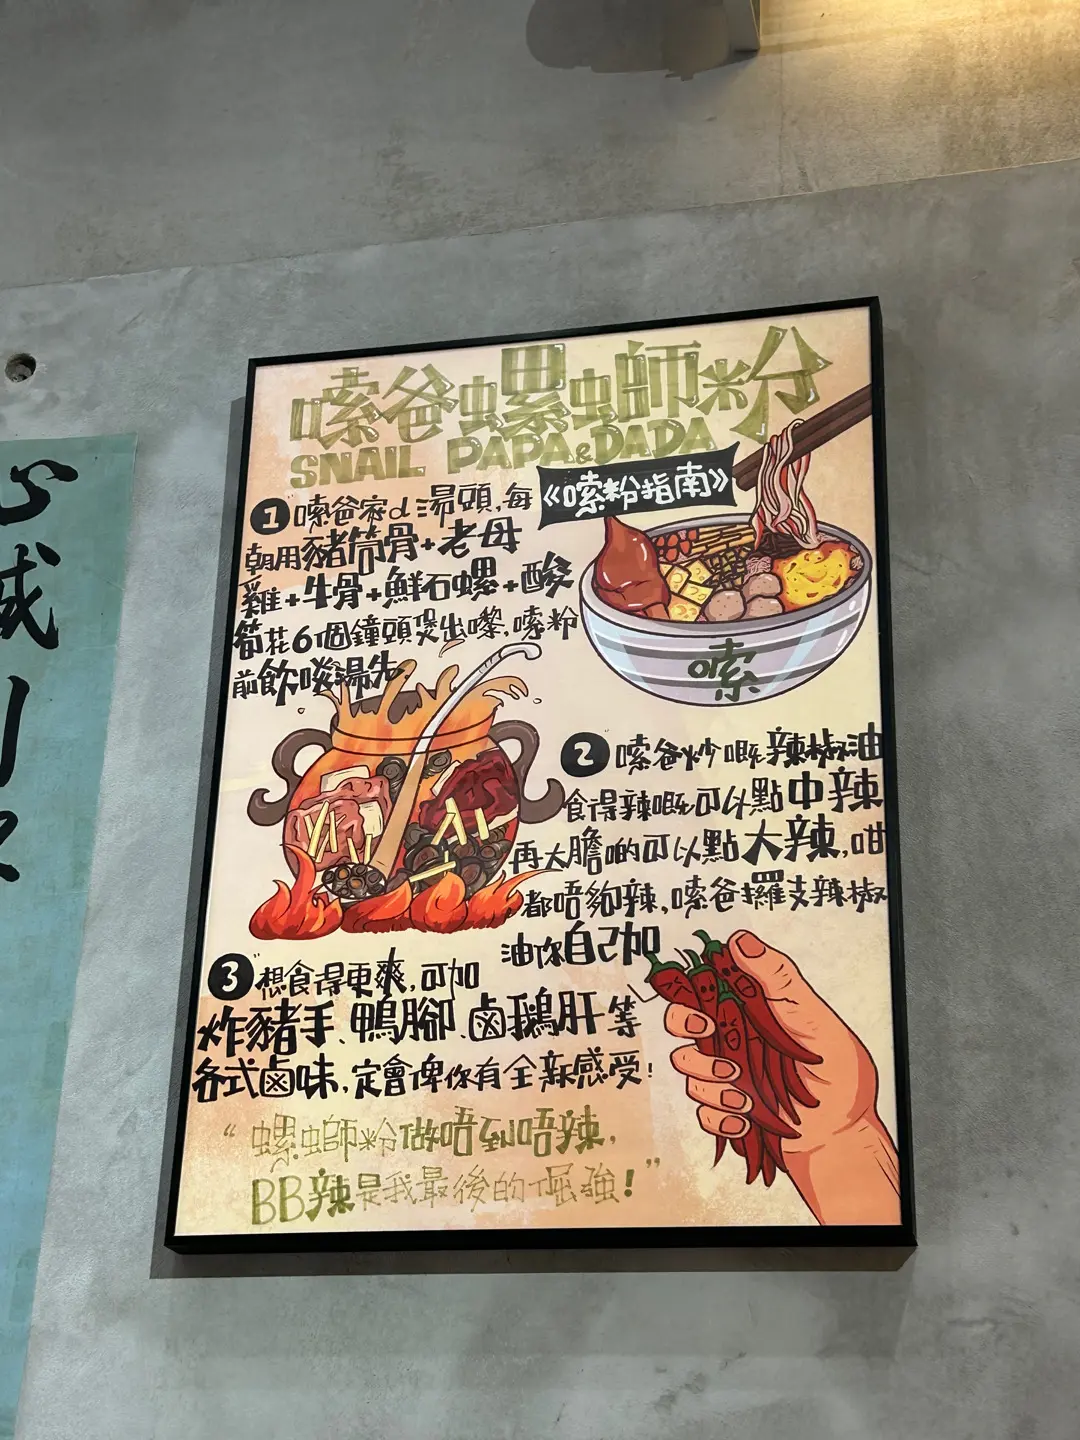 嗦爸螺螄粉
SNAIL PAPA&DADA
《嗦粉指南》
1 嗦爸家d湯頭,每
朝用豬筒骨+老母
雞+牛骨+鮮石螺+酸
筍花6個鐘頭煲出嚟,嗦粉
前飲啖湯先
嗦
2 嗦爸炒嘅辣椒油
食得辣嘅可以點中辣
再大膽啲可以點大辣,咁
都唔夠辣,嗦爸攞支辣椒
油你自己加
3 想食得更爽,可加
炸豬手、鴨腳、鹵鵝肝等
各式鹵味,定會俾你有全新感受!
“螺螄粉做唔到唔辣,
BB辣是我最後的倔強!”
心
誠